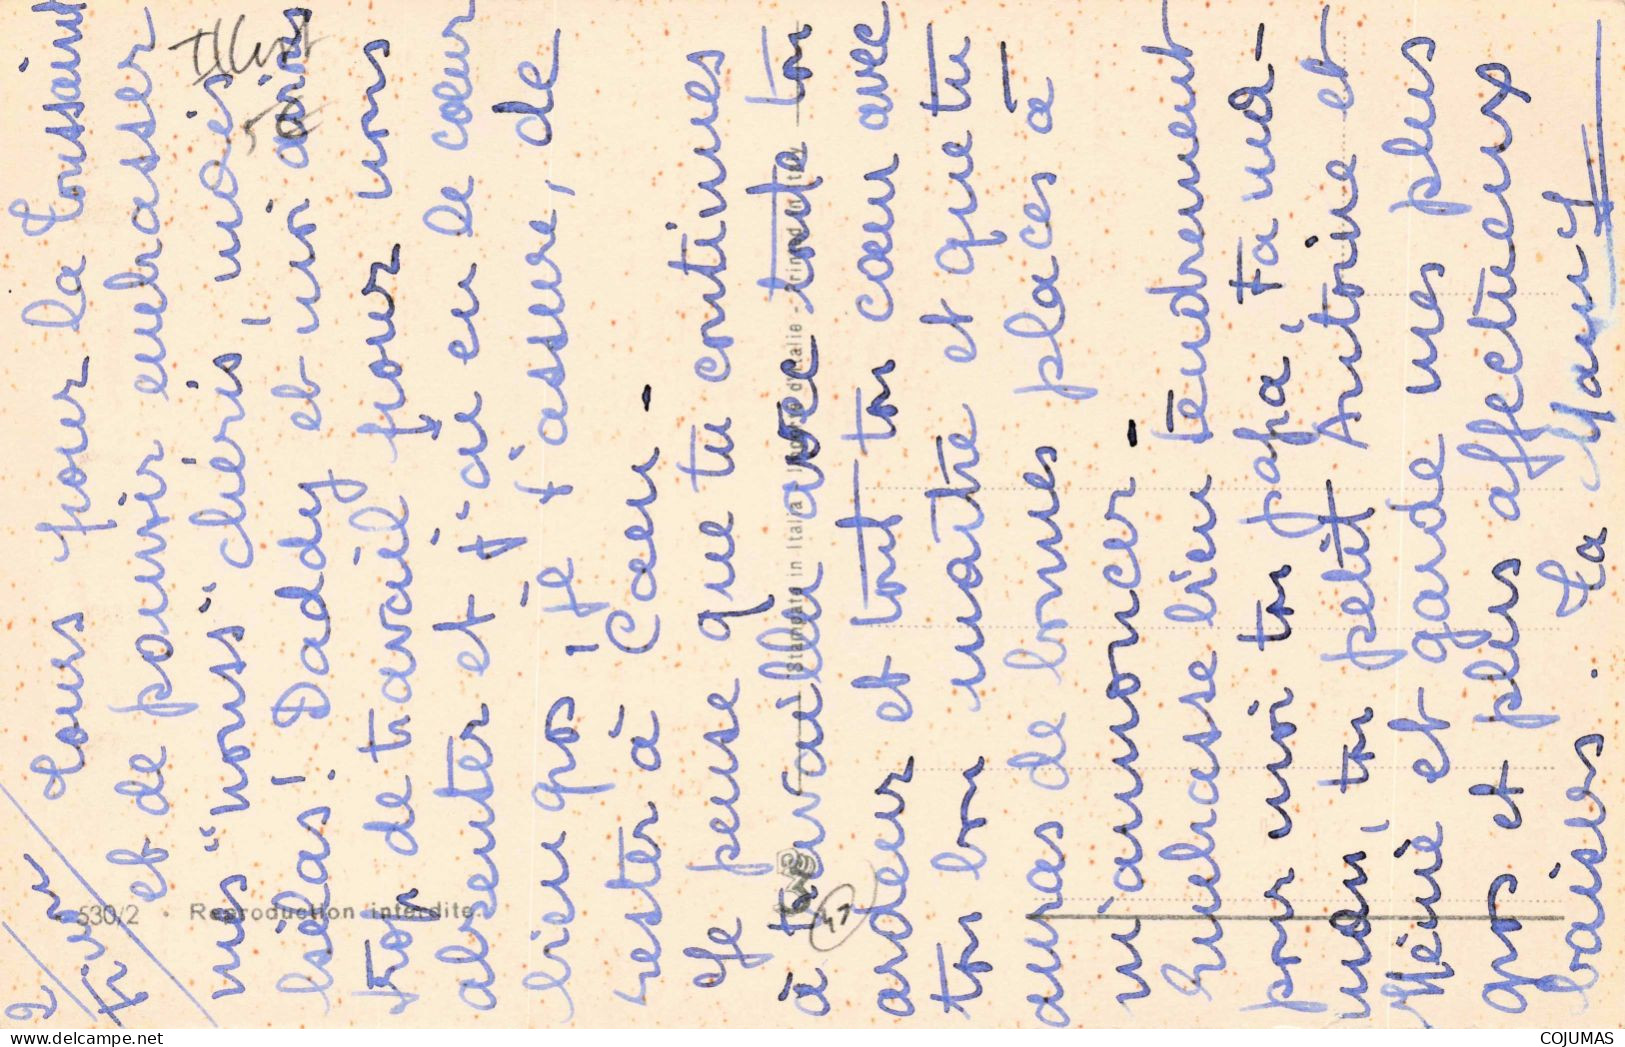 2
Tours pour la Toussaint
et de pouvoir embrasser
mes "nonss" chéris, mais
hélas ! Daddy et moi avons
trop de travail pour nous
absenter et j'ai eu le cœur
bien gros, je t'assure, de
rester à Caen.
Je pense que tu continues
à travailler avec toute ton
ardeur et tout ton cœur avec
ton bon maître et que tu
auras de bonnes places à
m'annoncer.
Embrasse bien tendrement
pour moi ton papa, ta ma-
man, ton petit Antoine et
Mémé et garde mes plus
gros et plus affectueux
baisers. Ta Mamy
530/2 • Reproduction interdite.
Stampato in Italia
41
www.delcampe.net
COJUMAS